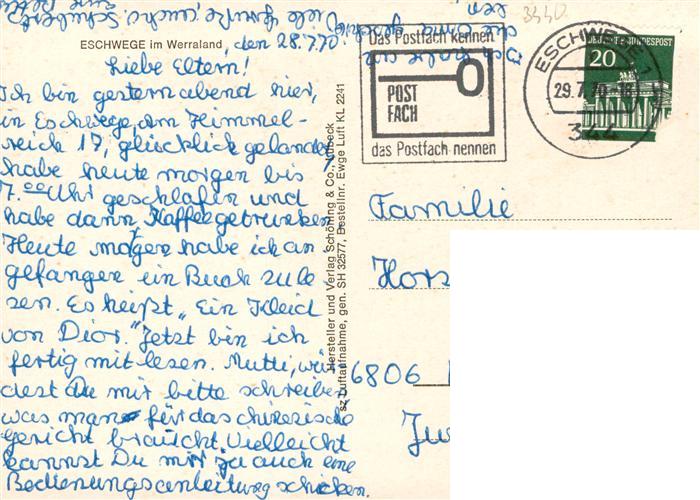 ESCHWEGE im Werraland, den 28.7.70.
Liebe Eltern!
Ich bin gestern abend hier,
in Eschwege, Am Himmel-
reich 17, glücklich gelandet,
habe heute morgen bis
7.00 Uhr geschlafen und
habe dann Kaffee getrunken.
Heute morgen habe ich an
gefangen ein Buch zu le
sen. Es heißt „Ein Kleid
von Dior." Jetzt bin ich
fertig mit lesen. Mutti, wür
dest Du mir bitte schreiben,
was man für das chinesische
gericht braucht. Vielleicht
kannst Du mir ja auch eine
Bedienungsanleitung schicken.
Viele
Hersteller und Verlag Schöning & Co., Lübeck
sz Luftaufnahme, gen. SH 32577, Bestellnr. Ewge Luft KL 2241
3440
Das Postfach kennen
POST
FACH
das Postfach nennen
ESCHWEGE 1
29.7.70-18
344
DEUTSCHE BUNDESPOST
20
Familie
Hors
6806